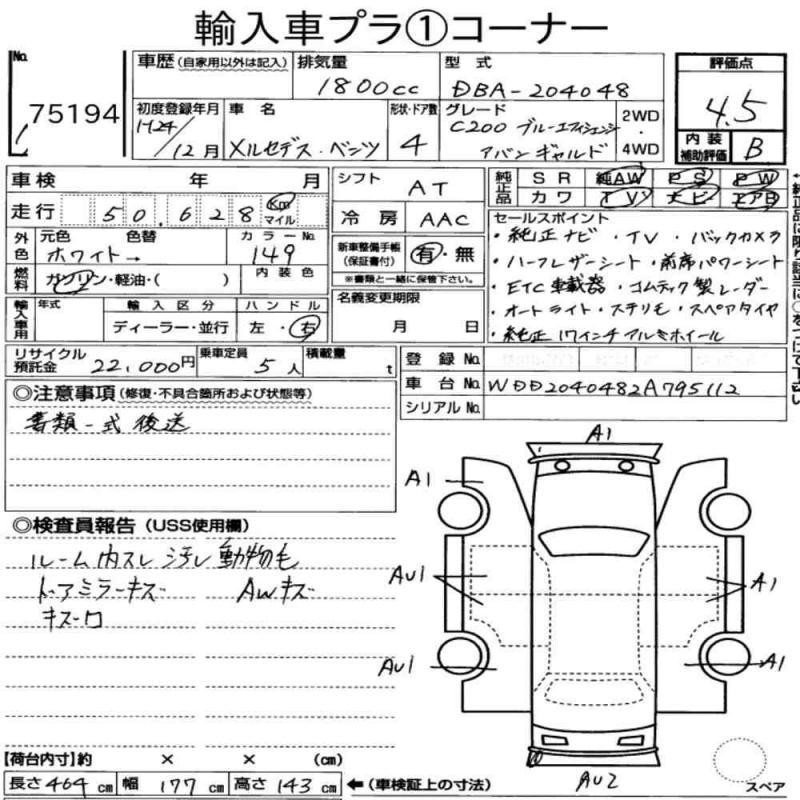 輸入車プラ①コーナー
No. 75194
車歴 (自家用以外は記入) 排気量 1800cc 型式 DBA-204048 評価点 4.5
初度登録年月 H24/12月 車名 メルセデス・ベンツ 形状・ドア数 4 グレード C200 ブルーエフィシェンシー アバンギャルド 2WD 4WD 内装補助評価 B
車検 年 月 シフト AT 純正品 SR 純AW PS PW
カワ TV ナビ エアB
走行 50,628 Km マイル 冷房 AAC セールスポイント
外色 元色 色替 カラーNo. ホワイト → 149 新車整備手帳(保証書付) 有・無 ・純正ナビ ・TV ・バックカメラ
燃料 ガソリン・軽油・( ) 内装色 ※書類と一緒に保管下さい。 ・ハーフレザーシート・前席パワーシート
輸入車用 年式 輸入区分 ハンドル 名義変更期限 ・ETC車載器・コムテック製レーダー
ディーラー・並行 左・右 月 日 ・オートライト・ステリモ・スペアタイヤ
・純正17インチアルミホイール
リサイクル預託金 22,000円 乗車定員 5人 積載量 t 登録No.
車台No. WDD2040482A795112
シリアルNo.
◎注意事項 (修復・不具合箇所および状態等)
書類一式後送
◎検査員報告 (USS使用欄)
ルーム内スレ 汚レ 動物毛
ドアミラーキズ AWキズ
キズ口
A1
A1
AU1 A1
AU1 A1
AU2
スペア
【荷台内寸】約 × × (cm)
長さ 464 cm 幅 177 cm 高さ 143 cm ←(車検証上の寸法)